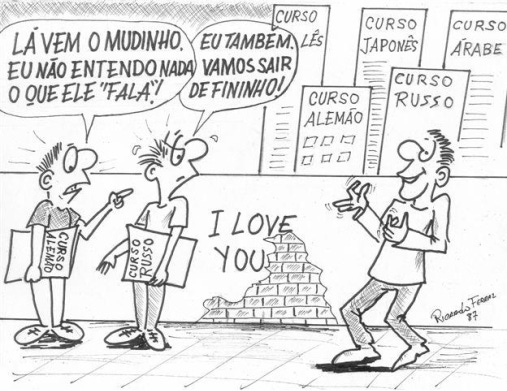 LÁ VEM O MUDINHO.
EU NÃO ENTENDO NADA
O QUE ELE "FALA".!
EU TAMBÉM.
VAMOS SAIR
DE FININHO!
CURSO
LÊS
CURSO
JAPONÊS
CURSO
ÁRABE
CURSO
ALEMÃO
CURSO
RUSSO
CURSO
ALEMÃO
CURSO
RUSSO
I LOVE
YOU
RICARDO FERRAZ
87